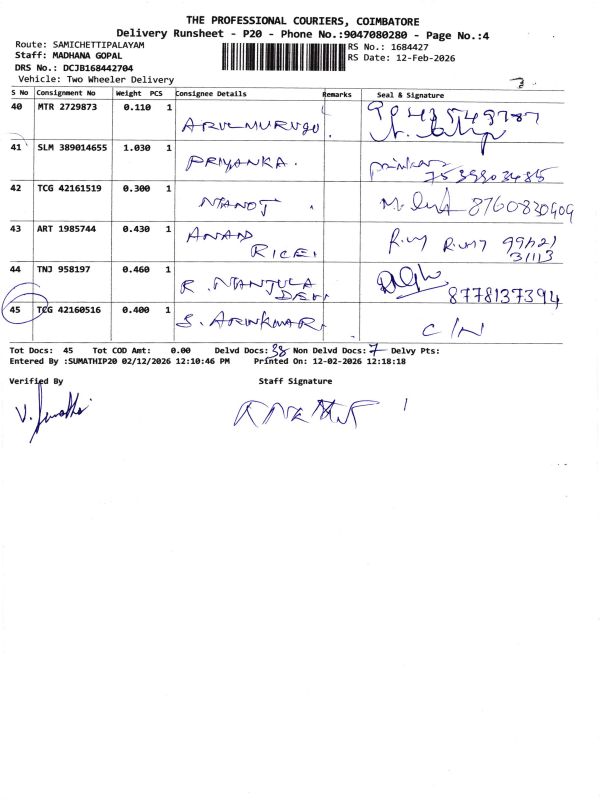 THE PROFESSIONAL COURIERS, COIMBATORE
Delivery Runsheet - P20 - Phone No.:9047080280 - Page No.:4
Route: SAMICHETTIPALAYAM RS No.: 1684427
Staff: MADHANA GOPAL RS Date: 12-Feb-2026
DRS No.: DCJB168442704
Vehicle: Two Wheeler Delivery
S No Consignment No Weight PCS Consignee Details Remarks Seal & Signature
40 MTR 2729873 0.110 1
ARULMURUGO
41 SLM 389014655 1.030 1
PRIYANKA. 7539903485
42 TCG 42161519 0.300 1
8760830909
43 ART 1985744 0.430 1 ANAND
RICE
44 TNJ 958197 0.460 1 R. MANJULA
DEVI 8778137394
45 TCG 42160516 0.400 1 C/N
Tot Docs: 45 Tot COD Amt: 0.00 Delvd Docs: 38 Non Delvd Docs: 7 Delvy Pts:
Entered By :SUMATHIP20 02/12/2026 12:10:46 PM Printed On: 12-02-2026 12:18:18
Verified By Staff Signature